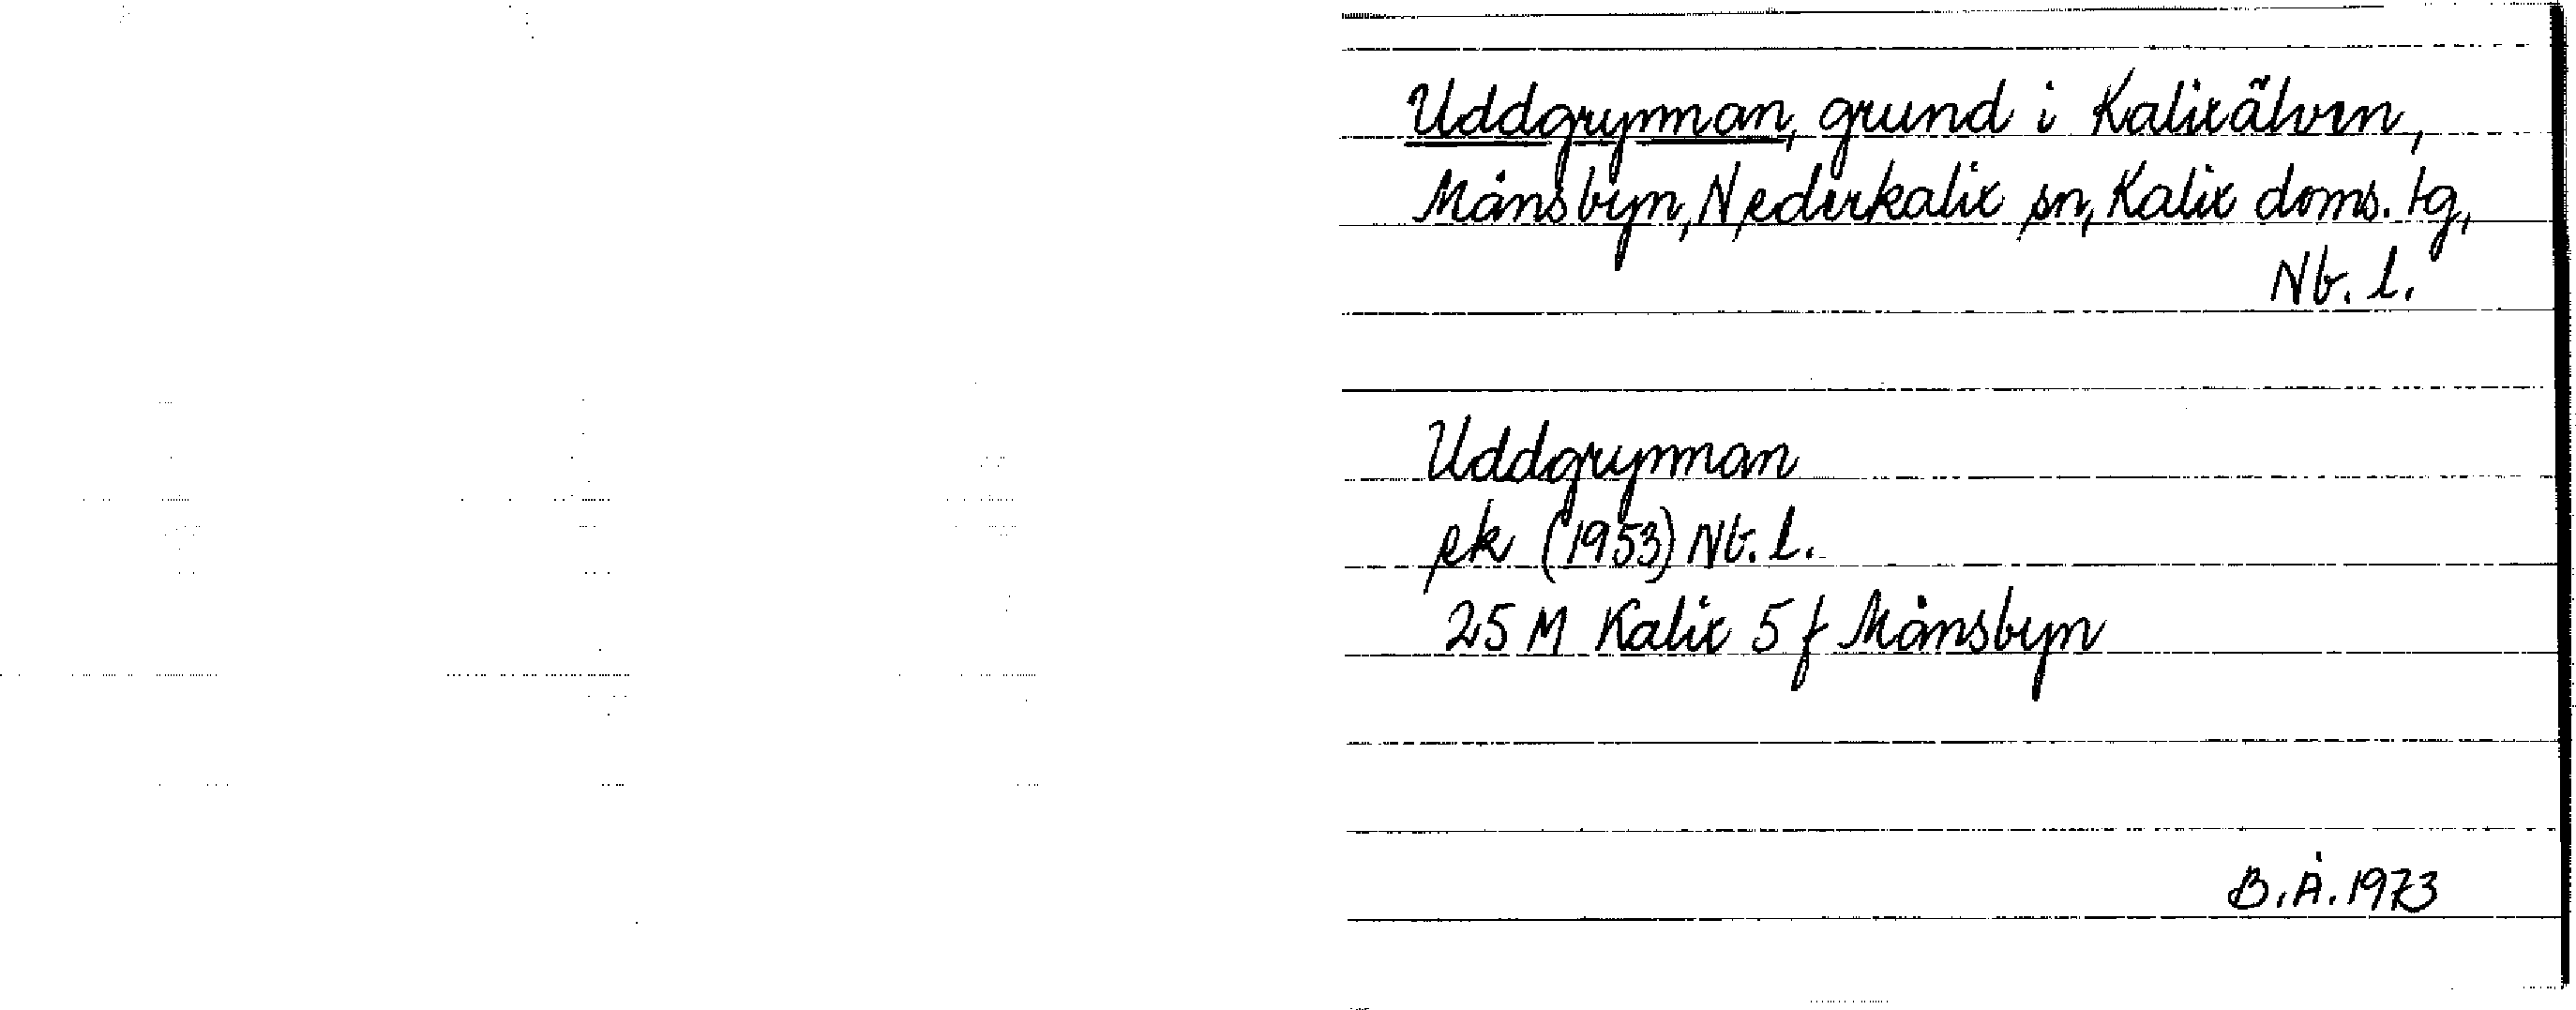 Uddgrynnan, grund i Kalixälven,
Månsbyn, Nederkalix sn, Kalix doms. tg,
Nb. l.
Uddgrynnan
ek (1953) Nb. l.
25 M Kalix 5 f Månsbyn
B.Å. 1973